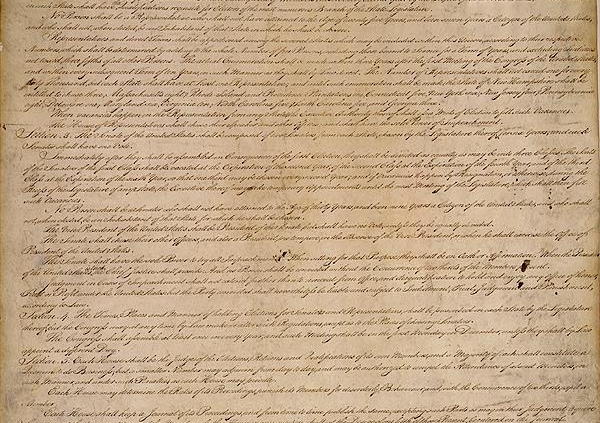 each State shall have the Qualifications requisite for Electors of the most numerous Branch of the State Legislature.
No Person shall be a Representative who shall not have attained to the Age of twenty five Years, and been seven Years a Citizen of the United States,
and who shall not, when elected, be an Inhabitant of that State in which he shall be chosen.
Representatives and direct Taxes shall be apportioned among the several States which may be included within this Union, according to their respective
Numbers, which shall be determined by adding to the whole Number of free Persons, including those bound to Service for a Term of Years, and excluding Indians
not taxed, three fifths of all other Persons. The actual Enumeration shall be made within three Years after the first Meeting of the Congress of the United States,
and within every subsequent Term of ten Years, in such Manner as they shall by Law direct. The Number of Representatives shall not exceed one for every
thirty Thousand, but each State shall have at Least one Representative; and until such enumeration shall be made, the State of New Hampshire shall be
entitled to chuse three, Massachusetts eight, Rhode-Island and Providence Plantations one, Connecticut five, New-York six, New Jersey four, Pennsylvania
eight, Delaware one, Maryland six, Virginia ten, North Carolina five, South Carolina five, and Georgia three.
When vacancies happen in the Representation from any State, the Executive Authority thereof shall issue Writs of Election to fill such Vacancies.
The House of Representatives shall chuse their Speaker and other Officers; and shall have the sole Power of Impeachment.
Section. 3. The Senate of the United States shall be composed of two Senators from each State, chosen by the Legislature thereof, for six Years; and each
Senator shall have one Vote.
Immediately after they shall be assembled in Consequence of the first Election, they shall be divided as equally as may be into three Classes. The Seats
of the Senators of the first Class shall be vacated at the Expiration of the second Year, of the second Class at the Expiration of the fourth Year, and of the third
Class at the Expiration of the sixth Year, so that one third may be chosen every second Year; and if Vacancies happen by Resignation, or otherwise, during the
Recess of the Legislature of any State, the Executive thereof may make temporary Appointments until the next Meeting of the Legislature, which shall then fill
such Vacancies.
No Person shall be a Senator who shall not have attained to the Age of thirty Years, and been nine Years a Citizen of the United States, and who shall
not, when elected, be an Inhabitant of that State for which he shall be chosen.
The Vice President of the United States shall be President of the Senate, but shall have no Vote, unless they be equally divided.
The Senate shall chuse their other Officers, and also a President pro tempore, in the Absence of the Vice President, or when he shall exercise the Office of
President of the United States.
The Senate shall have the sole Power to try all Impeachments. When sitting for that Purpose, they shall be on Oath or Affirmation. When the President
of the United States is tried, the Chief Justice shall preside: And no Person shall be convicted without the Concurrence of two thirds of the Members present.
Judgment in Cases of Impeachment shall not extend further than to removal from Office, and disqualification to hold and enjoy any Office of honor,
Trust or Profit under the United States: but the Party convicted shall nevertheless be liable and subject to Indictment, Trial, Judgment and Punishment,
according to Law.
Section. 4. The Times, Places and Manner of holding Elections for Senators and Representatives, shall be prescribed in each State by the Legislature
thereof; but the Congress may at any time by Law make or alter such Regulations, except as to the Places of chusing Senators.
The Congress shall assemble at least once in every Year, and such Meeting shall be on the first Monday in December, unless they shall by Law
appoint a different Day.
Section. 5. Each House shall be the Judge of the Elections, Returns and Qualifications of its own Members, and a Majority of each shall constitute a
Quorum to do Business; but a smaller Number may adjourn from day to day, and may be authorized to compel the Attendance of absent Members, in
such Manner, and under such Penalties as each House may provide.
Each House may determine the Rules of its Proceedings, punish its Members for disorderly Behaviour, and, with the Concurrence of two thirds, expel a
Member.
Each House shall keep a Journal of its Proceedings, and from time to time publish the same, excepting such Parts as may in their Judgment require